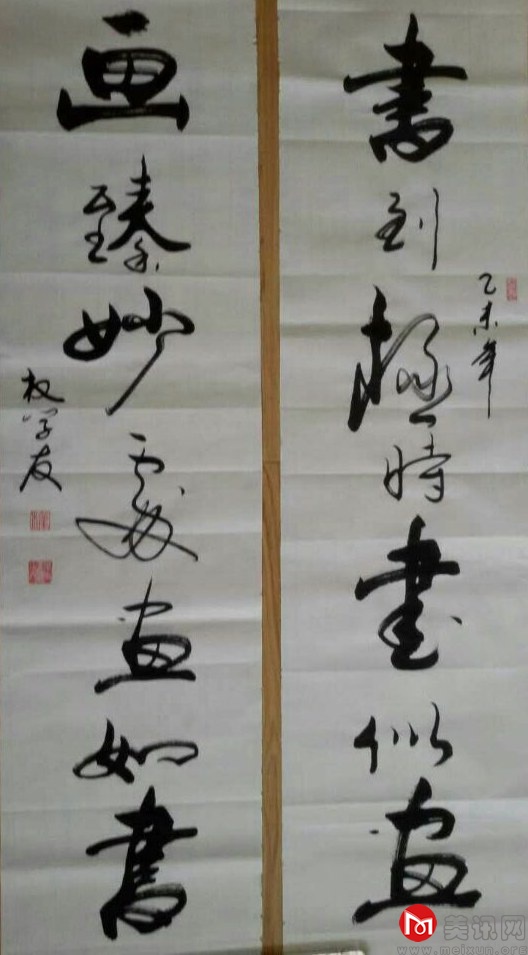 書到極時書似畫
乙未年
画臻妙處畫如書
权学友
美讯网
www.meixun.org